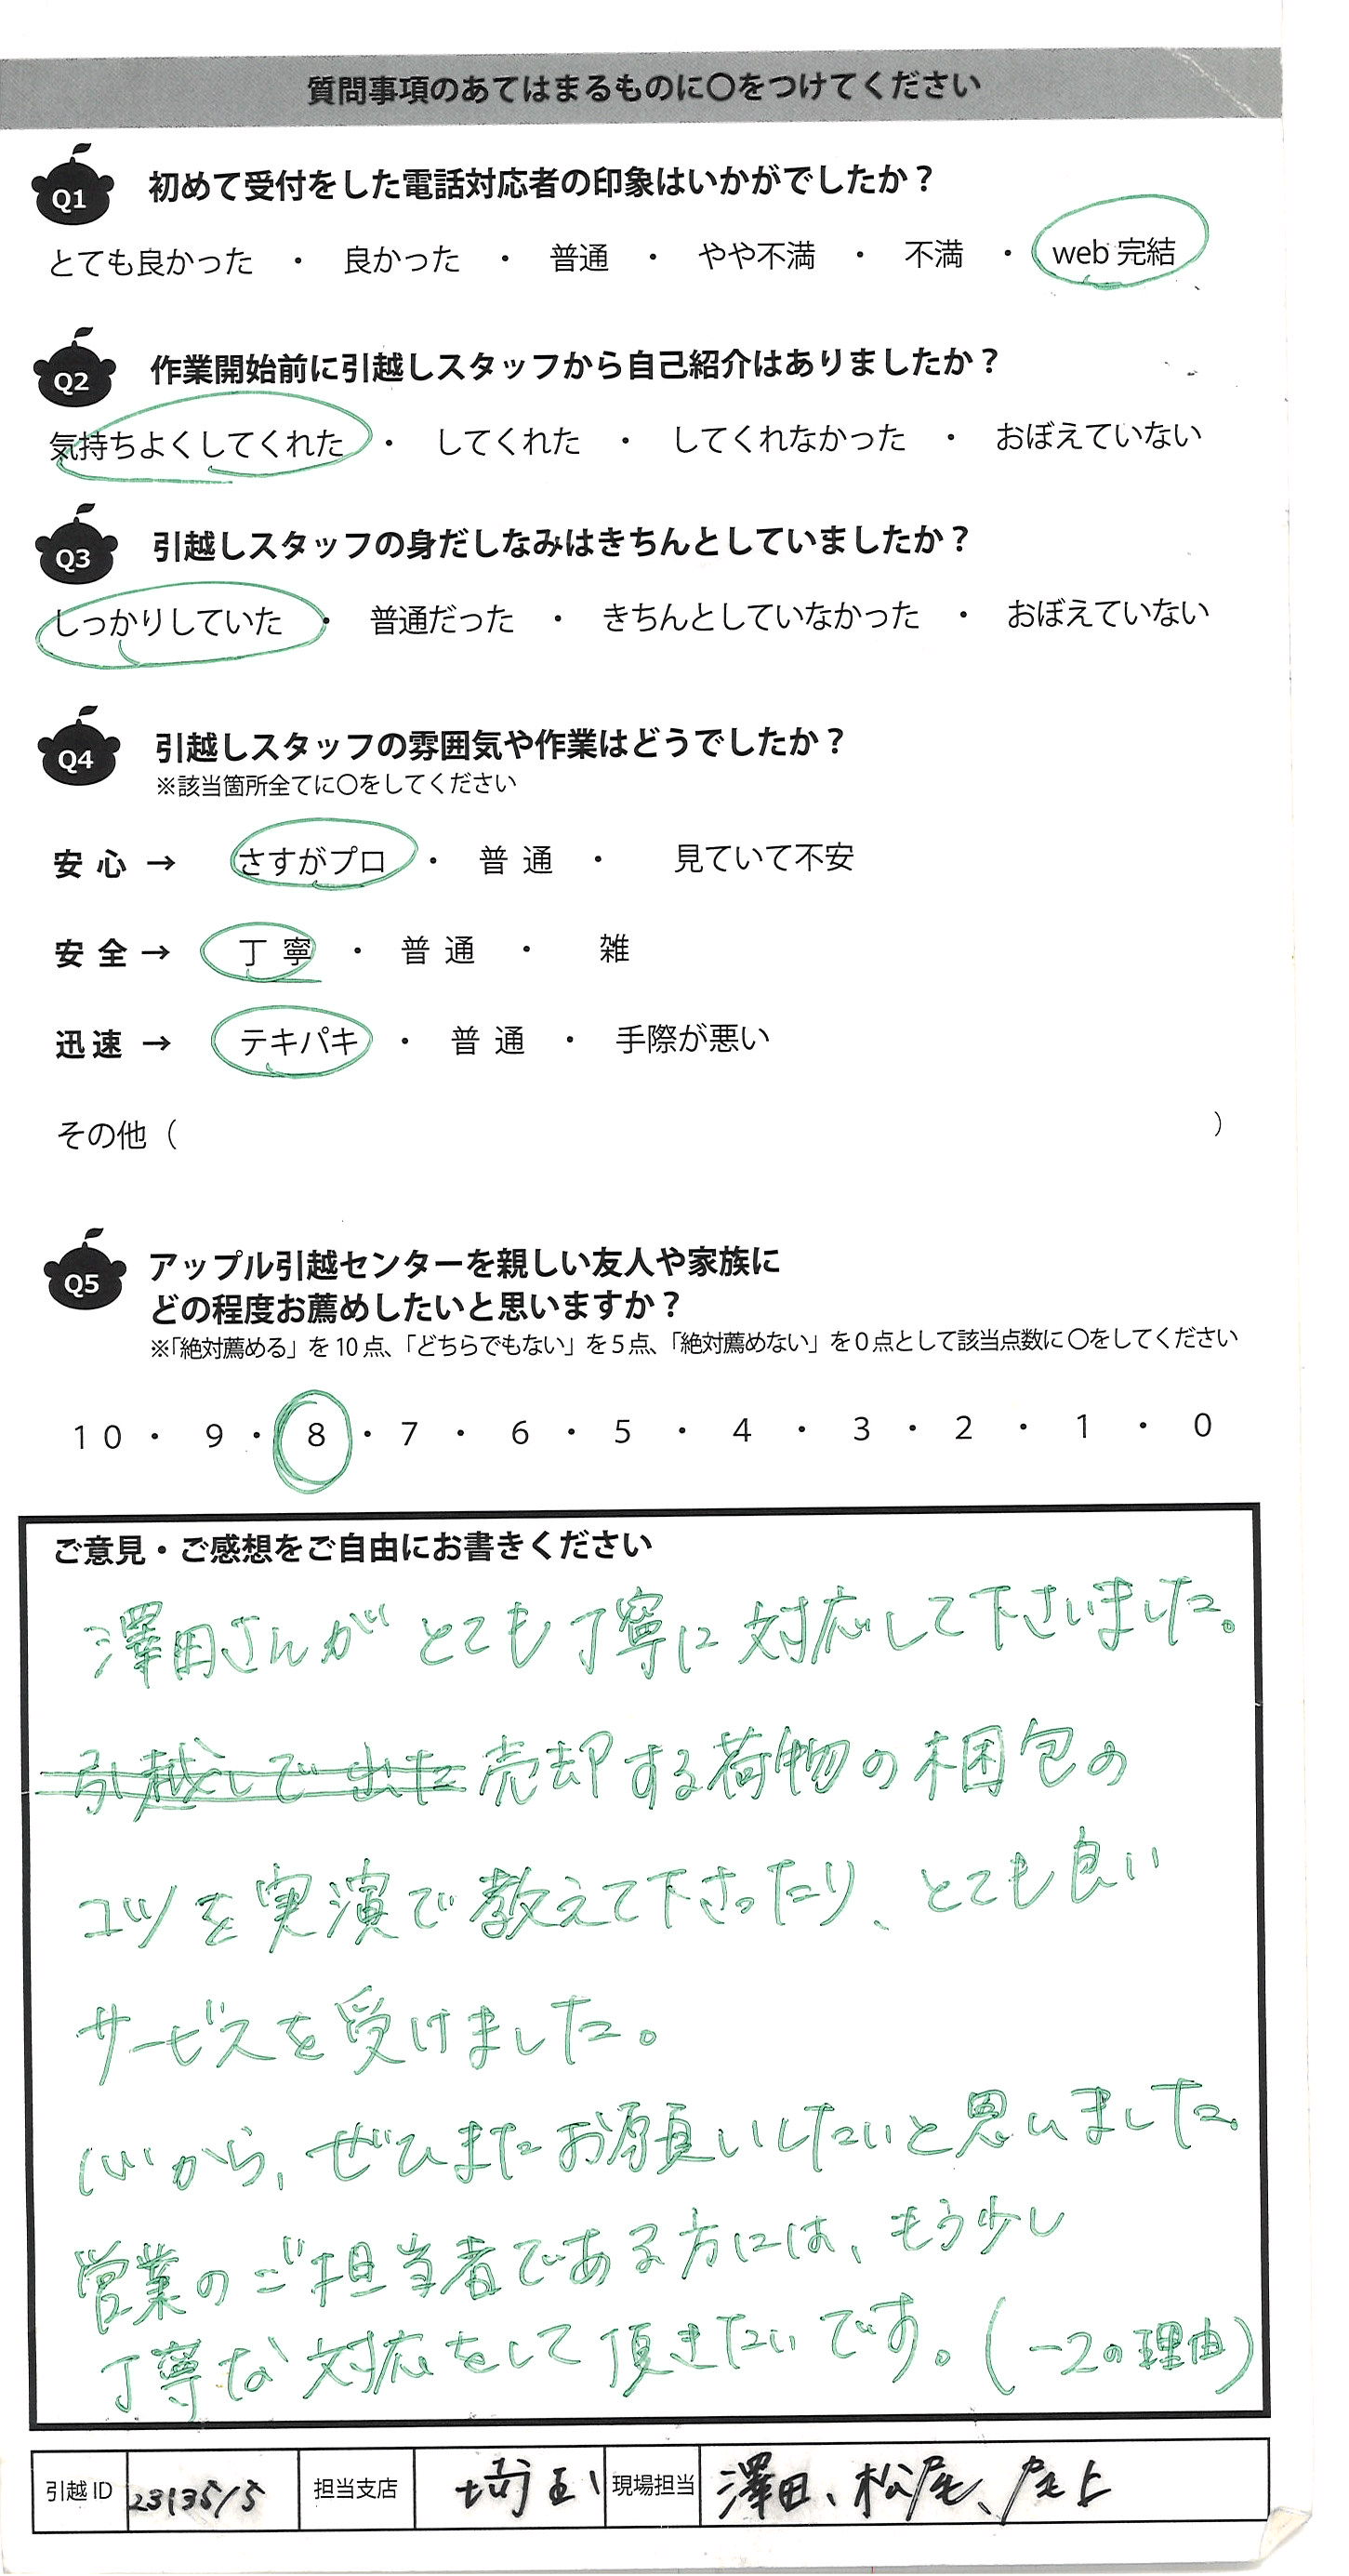 質問事項のあてはまるものに○をつけてください
Q1 初めて受付をした電話対応者の印象はいかがでしたか？
とても良かった ・ 良かった ・ 普通 ・ やや不満 ・ 不満 ・ web 完結
Q2 作業開始前に引越しスタッフから自己紹介はありましたか？
気持ちよくしてくれた ・ してくれた ・ してくれなかった ・ おぼえていない
Q3 引越しスタッフの身だしなみはきちんとしていましたか？
しっかりしていた ・ 普通だった ・ きちんとしていなかった ・ おぼえていない
Q4 引越しスタッフの雰囲気や作業はどうでしたか？
※該当箇所全てに○をしてください
安心 → さすがプロ ・ 普通 ・ 見ていて不安
安全 → 丁寧 ・ 普通 ・ 雑
迅速 → テキパキ ・ 普通 ・ 手際が悪い
その他（ ）
Q5 アップル引越センターを親しい友人や家族に
どの程度お薦めしたいと思いますか？
※「絶対薦める」を10点、「どちらでもない」を5点、「絶対薦めない」を0点として該当点数に○をしてください
10 ・ 9 ・ 8 ・ 7 ・ 6 ・ 5 ・ 4 ・ 3 ・ 2 ・ 1 ・ 0
ご意見・ご感想をご自由にお書きください
澤田さんがとても丁寧に対応して下さいました。
引越しで出た売却する荷物の梱包の
コツを実演で教えて下さったり、とても良い
サービスを受けました。
心から、ぜひまたお願いしたいと思いました。
営業のご担当者である方には、もう少し
丁寧な対応をして頂きたいです。(－2の理由)
引越ID 2313515 担当支店 埼玉 現場担当 澤田、松尾、尾上